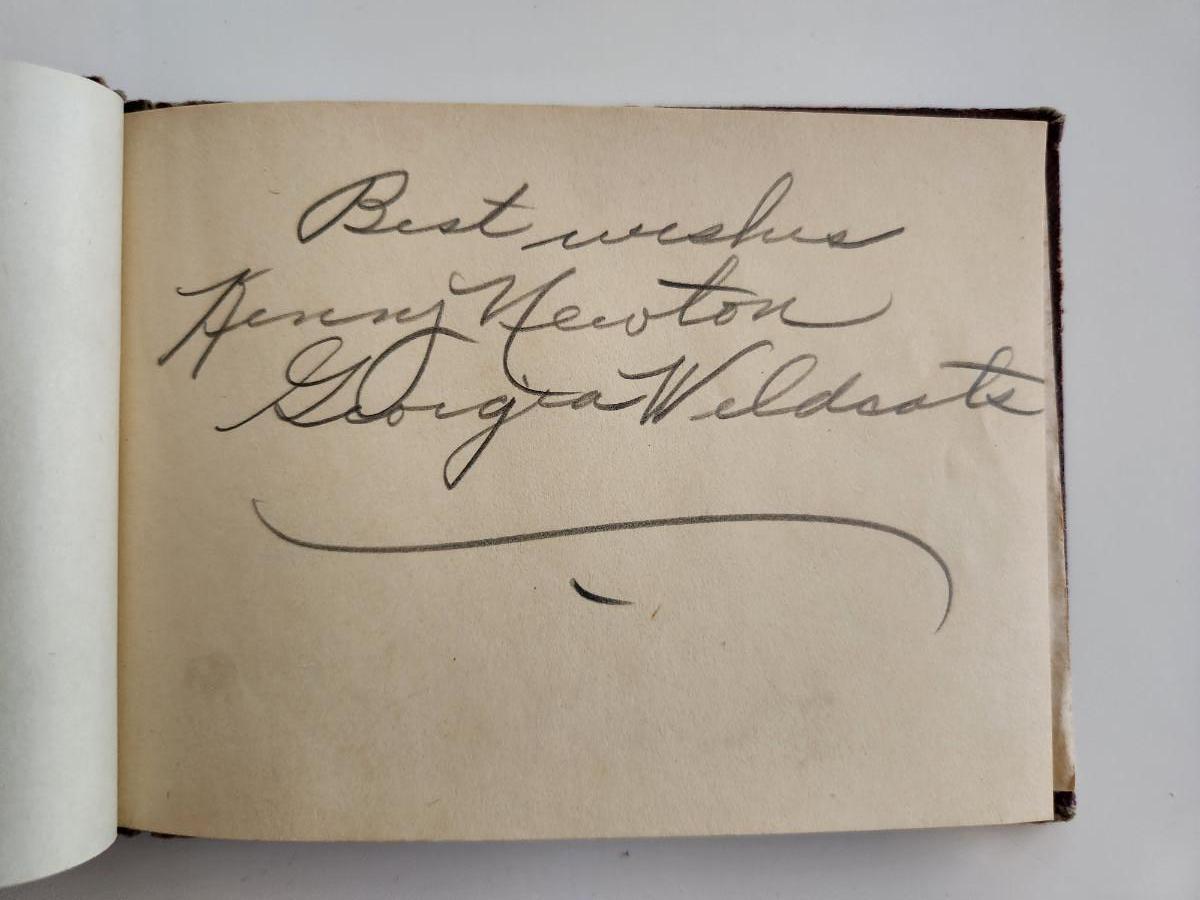 Best wishes
Kenny Newton
Georgia Wildcats